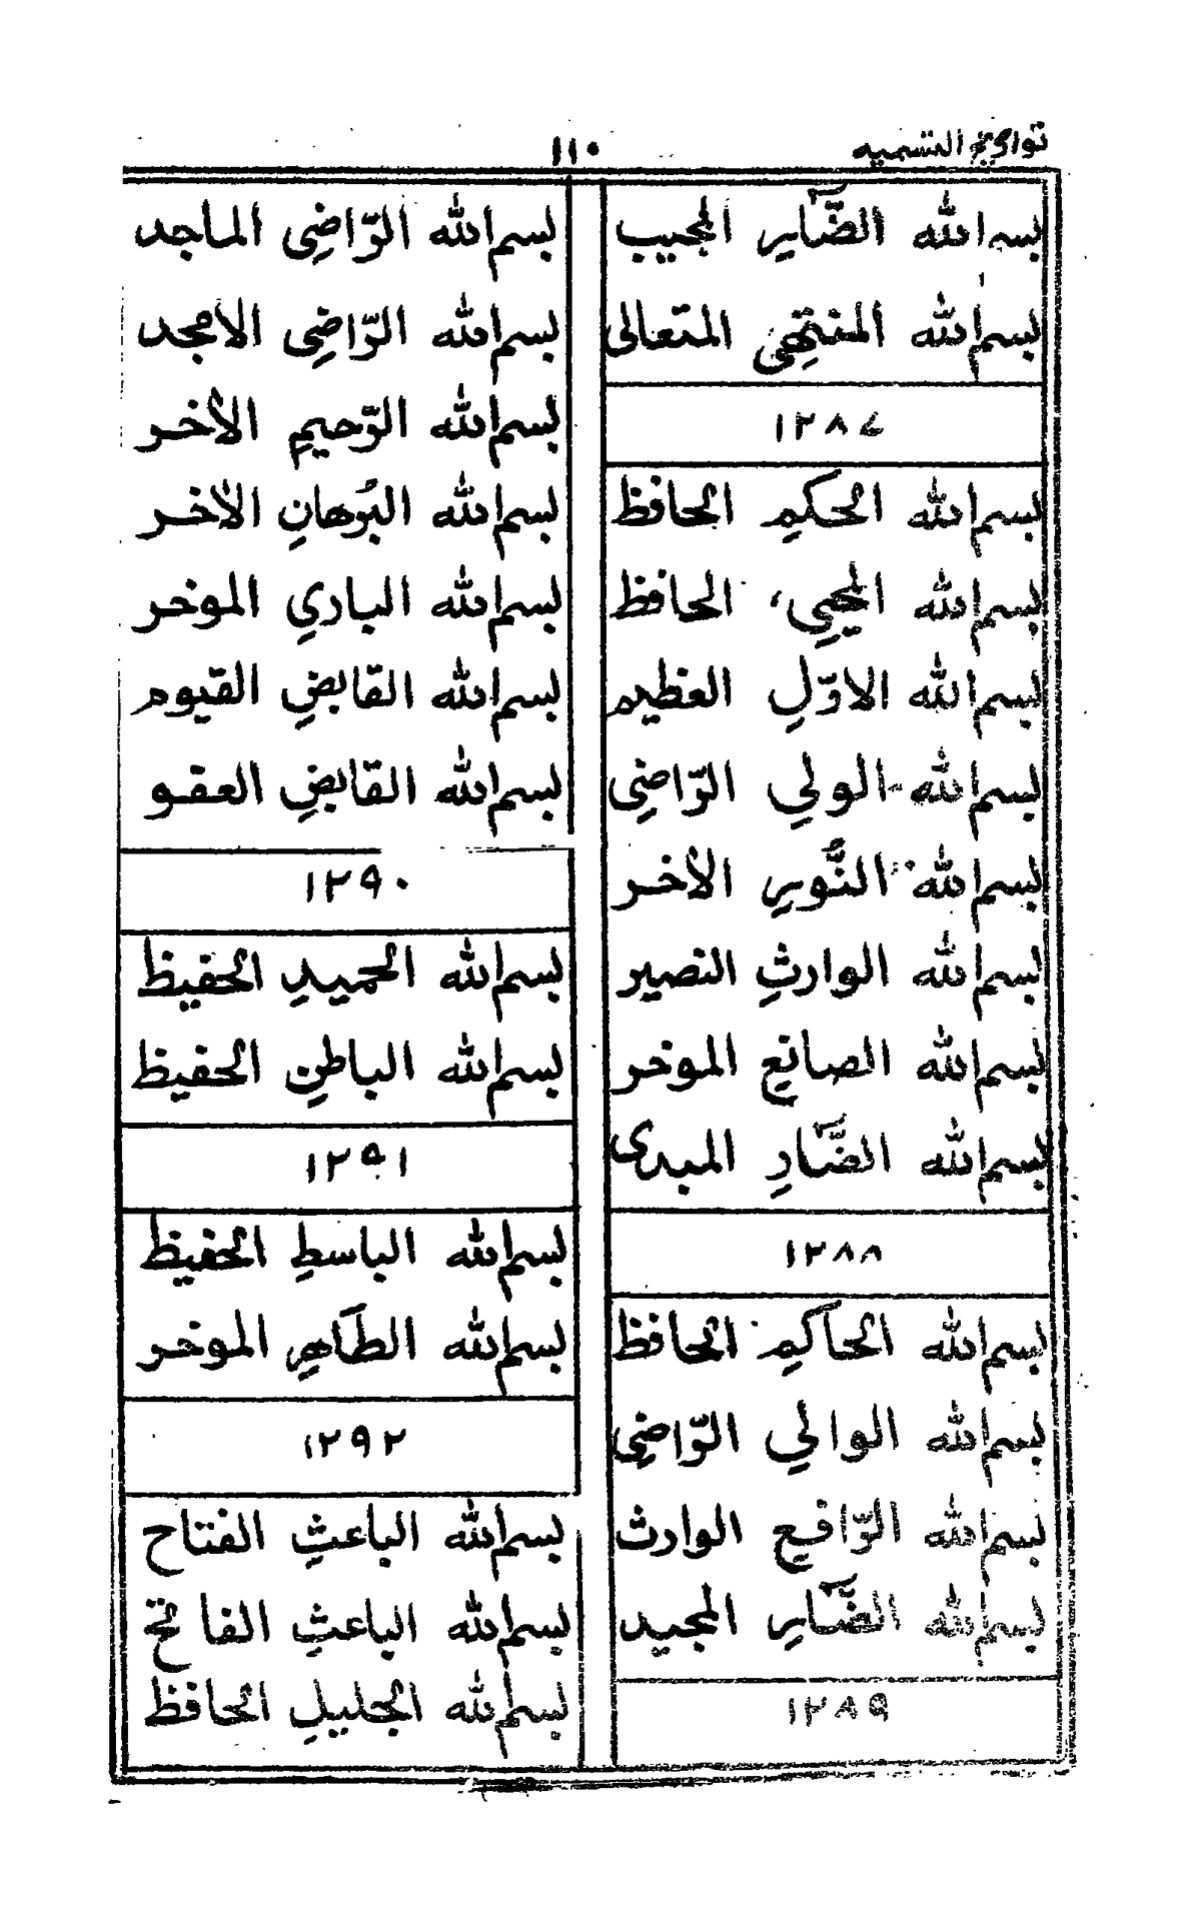 تواريخ التسميه
١١٠
بسم الله الضَّآيرِ المجيب
بسم الله المنتهِي المتعالى
١٢٨٧
بسم الله الحكيمِ الحافظ
بسم الله المحيي، الحافظ
بسم الله الاوّلِ العظيم
بسم الله الولي الرّاضِى
بسم الله النُّويرِ الأخر
بسم الله الوارثِ النصير
بسم الله الصانِعِ الموخر
بسم الله الضَّآرِ المبدى
١٢٨٨
بسم الله الحاكمِ الحافظ
بسم الله الوالي الرّاضِى
بسم الله الرّافِعِ الوارث
بسم الله الضَّآيرِ المجيد
١٢٨٩
بسم الله الرّاضِى الماجد
بسم الله الرّاضِى الامجد
بسم الله الرّحيمِ الأخر
بسم الله البُرهانِ الأخر
بسم الله الباريِ الموخر
بسم الله القابضِ القيوم
بسم الله القابضِ العفو
١٢٩٠
بسم الله الحميدِ الحفيظ
بسم الله الباطنِ الحفيظ
١٢٩١
بسم الله الباسطِ الحفيظ
بسم الله الطاهرِ الموخر
١٢٩٢
بسم الله الباعثِ الفتاح
بسم الله الباعثِ الفاتح
بسم الله الجليلِ الحافظ